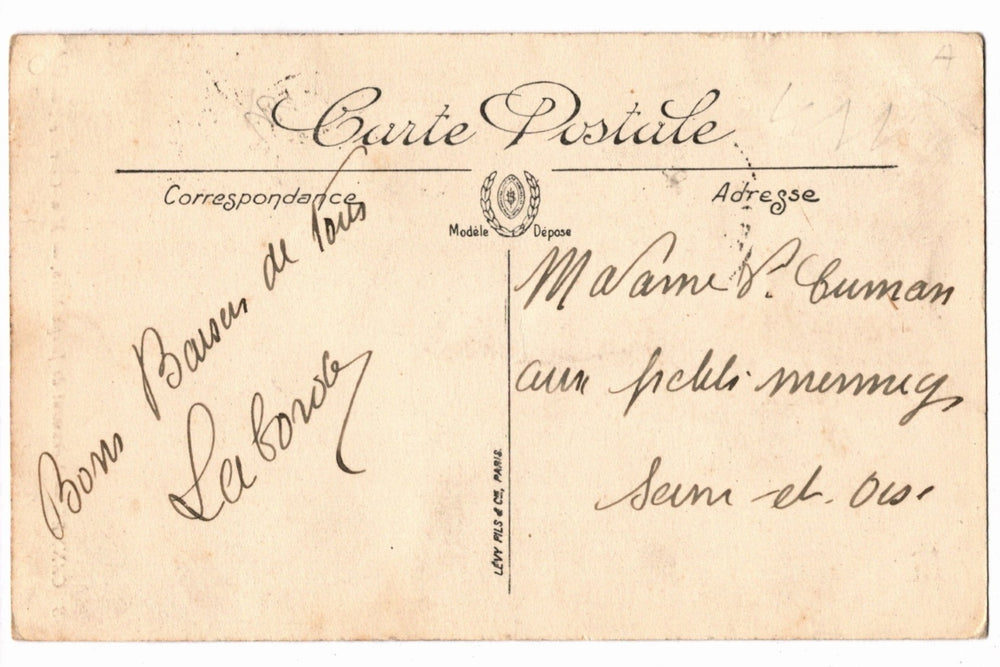 Carte Postale
Correspondance
Adresse
Modèle Déposé
Bons Baisers de Tous
Laborde
Madame V. Cuman
aux
Seine et Oise
LÉVY FILS & Cie, PARIS.